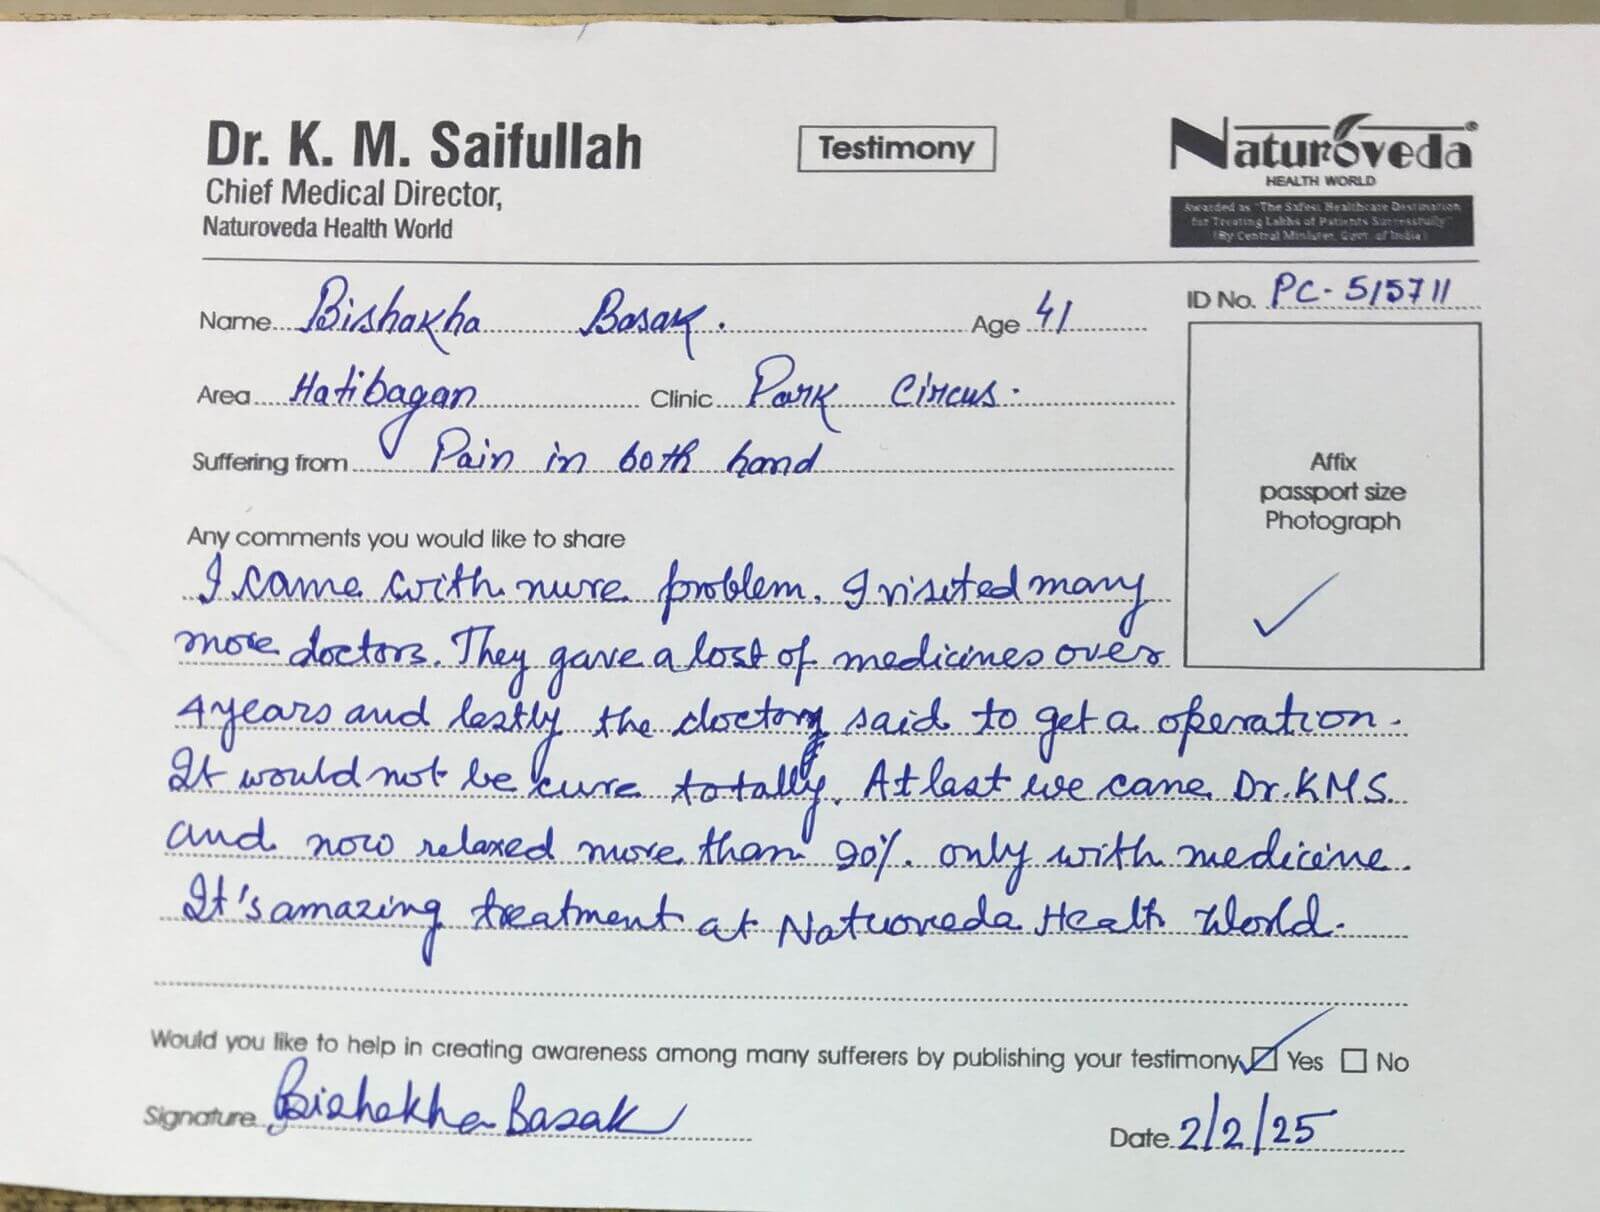 Dr. K. M. Saifullah
Chief Medical Director,
Naturoveda Health World
Testimony
Naturoveda®
HEALTH WORLD
Awarded as "The Safest Healthcare Destination
for Treating Lakhs of Patients Successfully"
(By Central Minister, Govt. of India)
Name Bishakha Basak. Age 41
ID No. PC-515711
Area Hatibagan Clinic Park Circus.
Suffering from Pain in both hand
Affix
passport size
Photograph
Any comments you would like to share
I came with nurve problem. I visited many
more doctors. They gave a lost of medicines over
4 years and lastly the doctory said to get a operation.
It would not be cure totally. At last we came Dr. KMS
and now relaxed more than 90%. only with medicine.
It's amazing treatment at Natuoveda Health World.
Would you like to help in creating awareness among many sufferers by publishing your testimony Yes No
Signature Bishakha Basak
Date 2/2/25